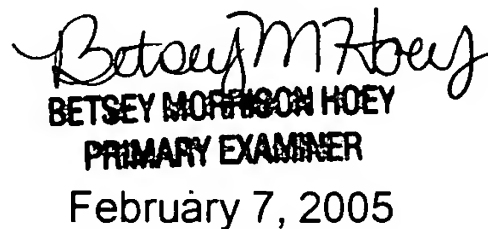 Betsey M Hoey
BETSEY MORRISON HOEY
PRIMARY EXAMINER
February 7, 2005